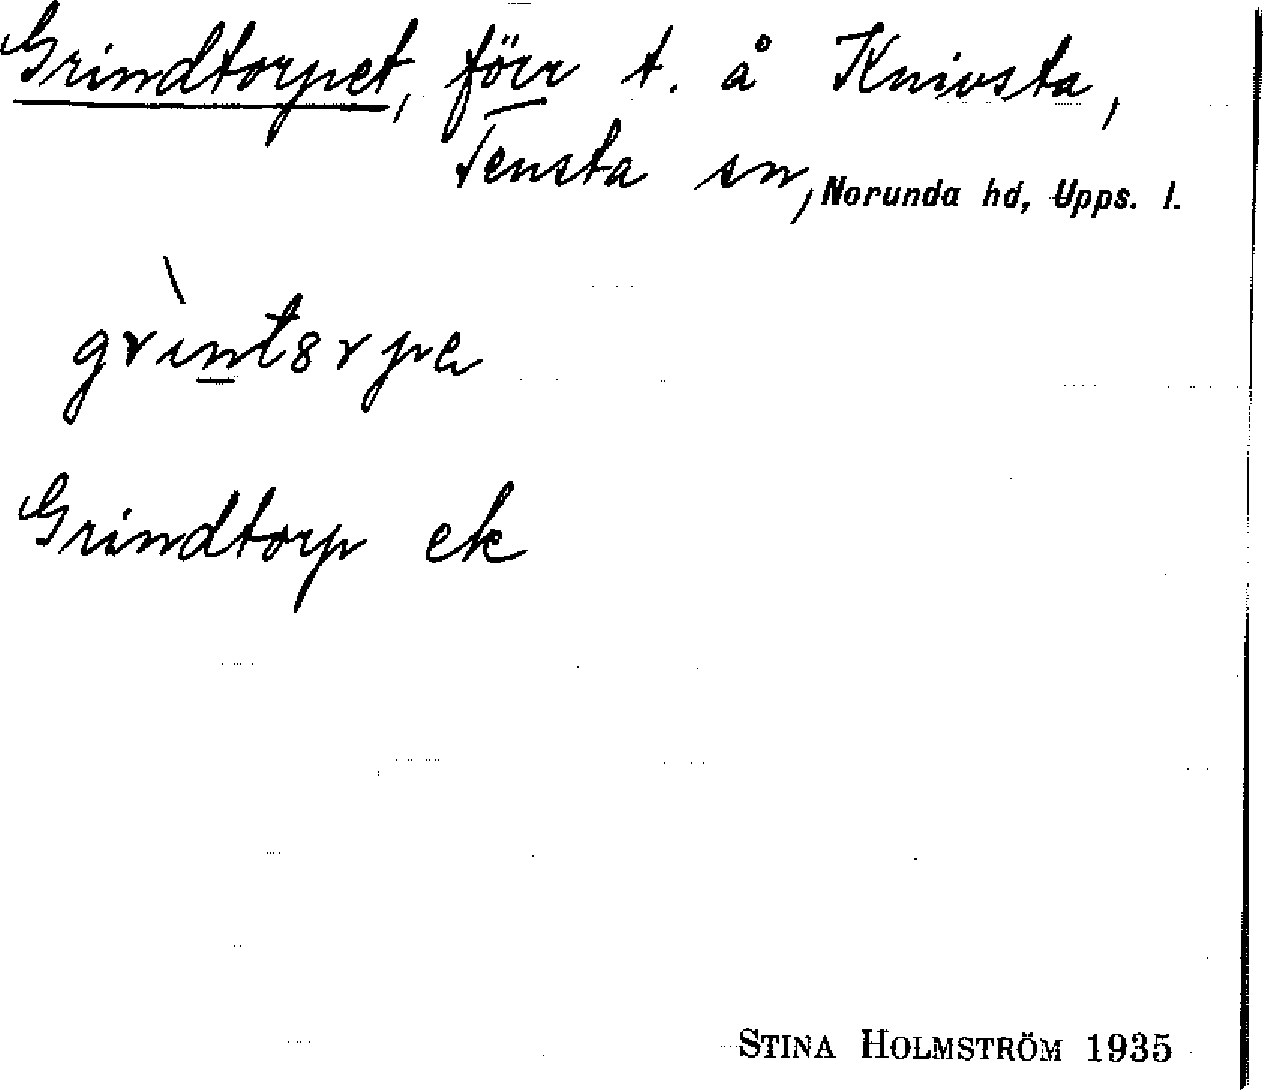 Grindtorpet, förr t. å Knivsta,
Tensta sn, Norunda hd, Upps. l.
grìnt8rpa
Grindtorp ek
STINA HOLMSTRÖM 1935